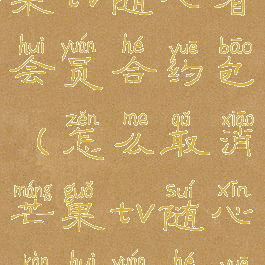 果tv随心看
huì yuán hé yuē bāo
会员合约包
zěn me qǔ xiāo
（怎么取消
máng guǒ suí xīn
芒果tv随心
kàn huì yuán hé yuē